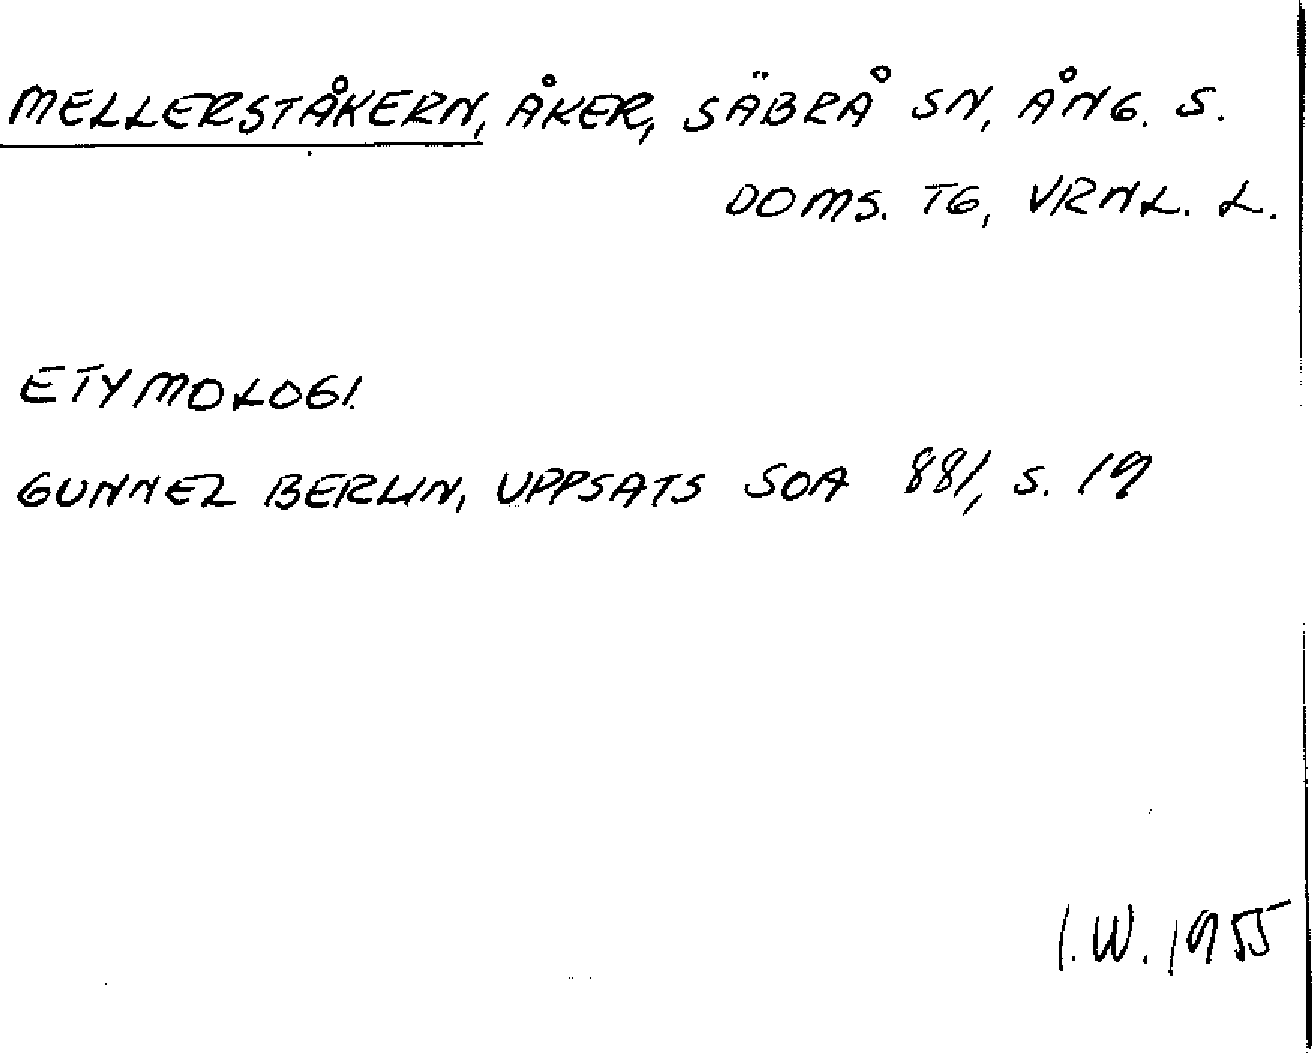 MELLERSTÅKERN, ÅKER, SÄBRÅ SN, ÅNG. S.
DOMS. TG, VRNL. L.
ETYMOLOGI.
GUNNEL BERLIN, UPPSATS SOA 881, S. 19
I.W. 1955